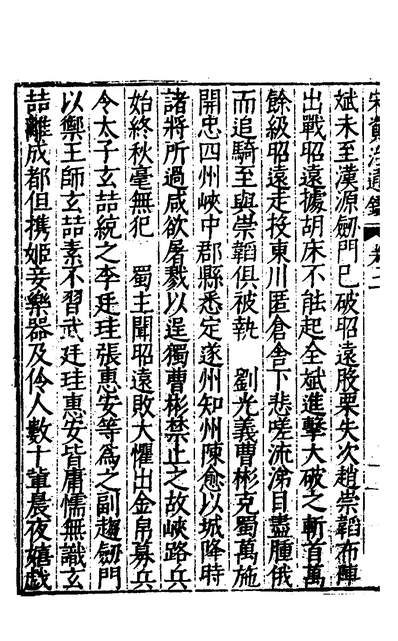 宋資治通鑑 卷二
斌未至漢源劒門已破昭遠股栗失次趙崇韜布陣
出戰昭遠據胡床不能起全斌進擊大破之斬首萬
餘級昭遠走投東川匿倉舍下悲嗟流涕目盡腫俄
而追騎至與崇韜俱被執 劉光義曹彬克蜀萬施
開忠四州峽中郡縣悉定遂州知州陳愈以城降時
諸將所過咸欲屠戮以逞獨曹彬禁止之故峽路兵
始終秋毫無犯 蜀主聞昭遠敗大懼出金帛募兵
令太子玄喆統之李廷珪張惠安等為之副趨劒門
以禦王師玄喆素不習武廷珪惠安皆庸懦無識玄
喆離成都但携姬妾樂器及伶人數十輩晨夜嬉戲